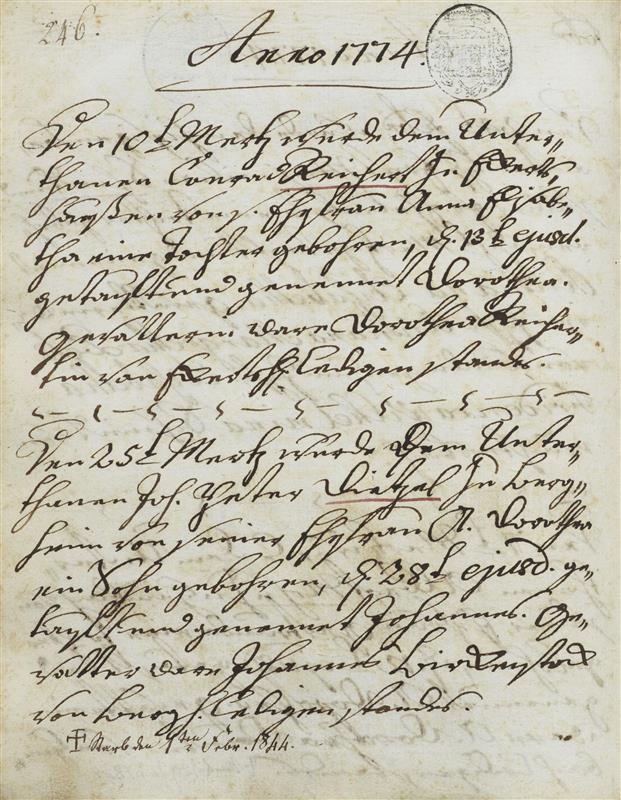 246.
Anno 1774.
Den 10t Mertz wurde dem Unter=
thanen Conrad Reichert In Ekerts=
haußen von s. Ehefrau Anna Elisabe=
tha eine Tochter gebohren, d. 13t ejusd.
getauft und genennet Dorothea.
Gevatterin ware Dorothea Reicher=
tin von Ekertsh. ledigen standes.
Den 25t Mertz wurde Dem Unter=
thanen Joh. Peter Dietzel In Berg=
heim von seiner Ehefrau A. Dorothea
ein Sohn gebohren, d. 28t ejusd. ge=
tauft und genennet Johannes. Ge=
vatter ware Johannes Birckenstock
von Bergh. ledigen standes.
Starb den 1ten Febr. 1844.